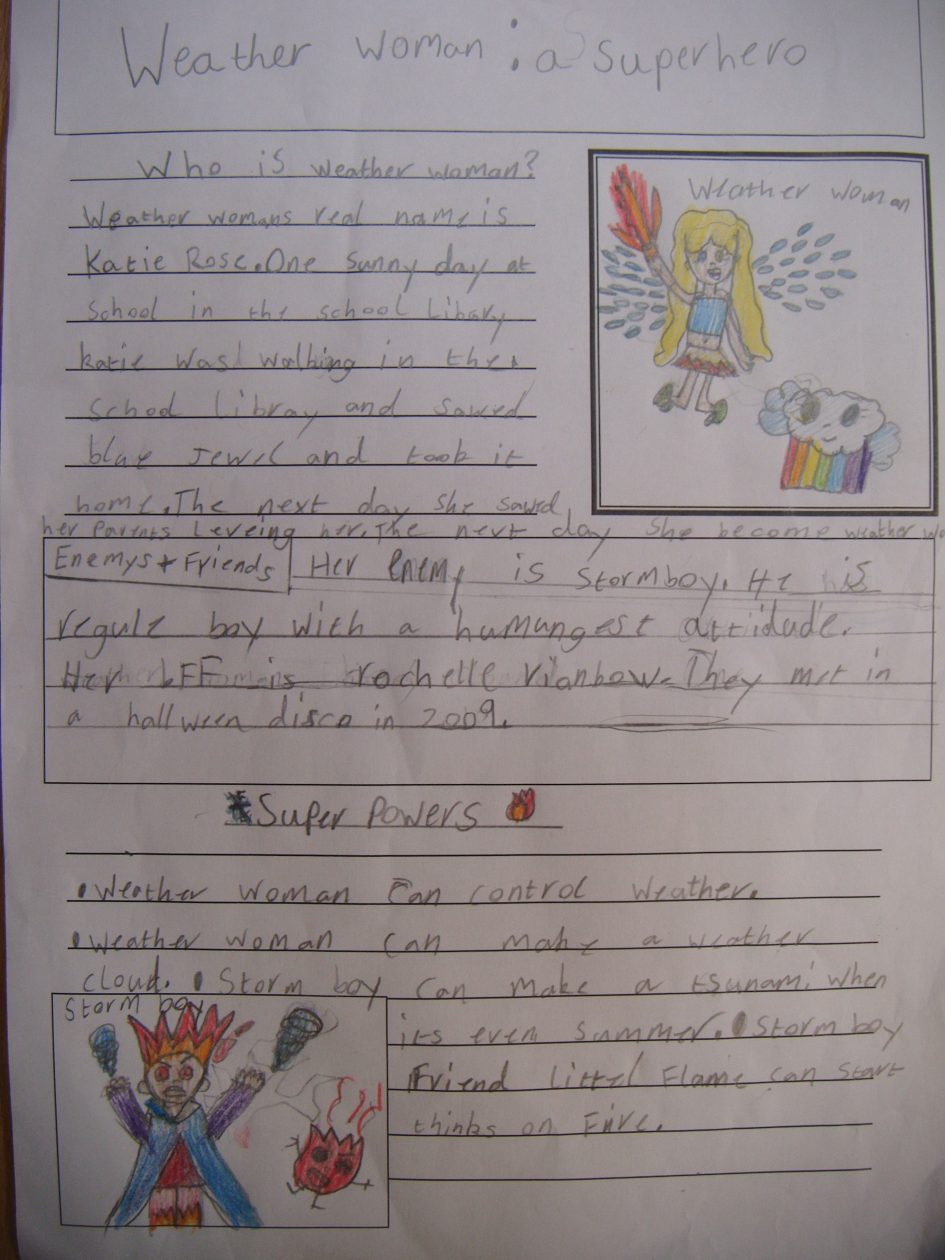 Weather woman : a superhero
Who is weather woman?
Weather womans real name is
Katie Rose. One sunny day at
school in the school Libary
katie was walking in the
school libray and sawed
blue Jewel and took it
home. The next day she sawed
her parents Leveing her. The next day she become weather wo
Weather woman
Enemys + Friends
Her Enemy is Stormboy. He is
regule boy with a humangest attiidude.
Her bFF is rochelle rianbow. They met in
a hallween disco in 2009.
Super Powers
• Weather woman can control weather.
• Weather woman can make a weather
cloud. • Storm boy can make a tsunami when
its even summer. • Storm boy
Friend littel Flame can start
thinks on Fire.
Storm boy